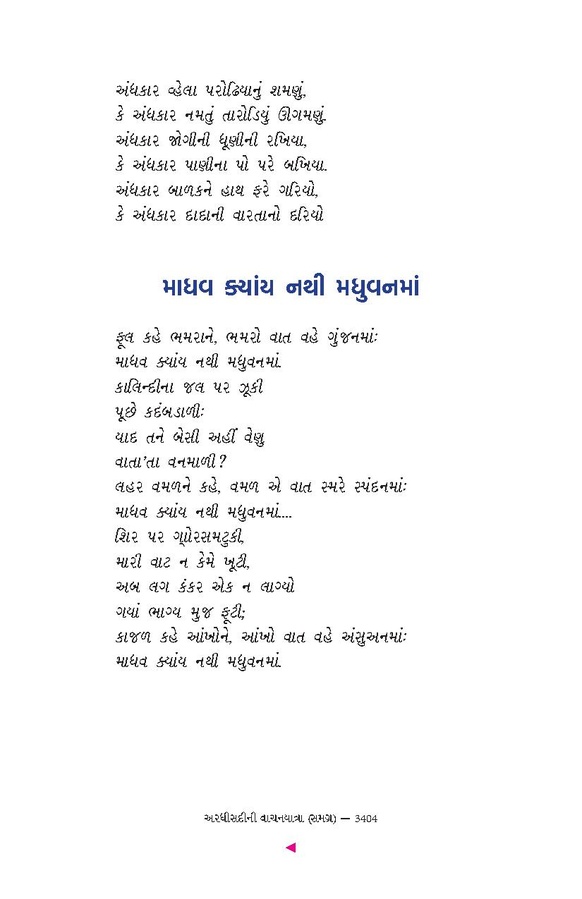 અંધકાર વ્હેલા પરોઢિયાનું શમણું,
કે અંધકાર નમતું તારોડિયું ઊગમણું.
અંધકાર જોગીની ધૂણીની રખિયા,
કે અંધકાર પાણીના પો પરે બખિયા.
અંધકાર બાળકને હાથ ફરે ગરિયો,
કે અંધકાર દાદાની વારતાનો દરિયો
માધવ ક્યાંય નથી મધુવનમાં
ફૂલ કહે ભમરાને, ભમરો વાત વહે ગુંજનમાંઃ
માધવ ક્યાંય નથી મધુવનમાં.
કાલિન્દીના જલ પર ઝૂકી
પૂછે કદંબડાળીઃ
યાદ તને બેસી અહીં વેણુ
વાતા’તા વનમાળી?
લહર વમળને કહે, વમળ એ વાત સ્મરે સ્પંદનમાંઃ
માધવ ક્યાંય નથી મધુવનમાં....
શિર પર ગોરસમટુકી,
મારી વાટ ન કેમે ખૂટી,
અબ લગ કંકર એક ન લાગ્યો
ગયાં ભાગ્ય મુજ ફૂટી;
કાજળ કહે આંખોને, આંખો વાત વહે અંસુઅનમાંઃ
માધવ ક્યાંય નથી મધુવનમાં.
અરધીસદીની વાચનયાત્રા (સમગ્ર) — 3404